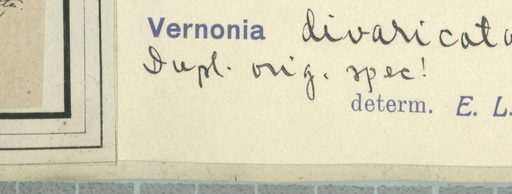 Vernonia divaricata
Dupl. orig. spec!
determ. E. L.